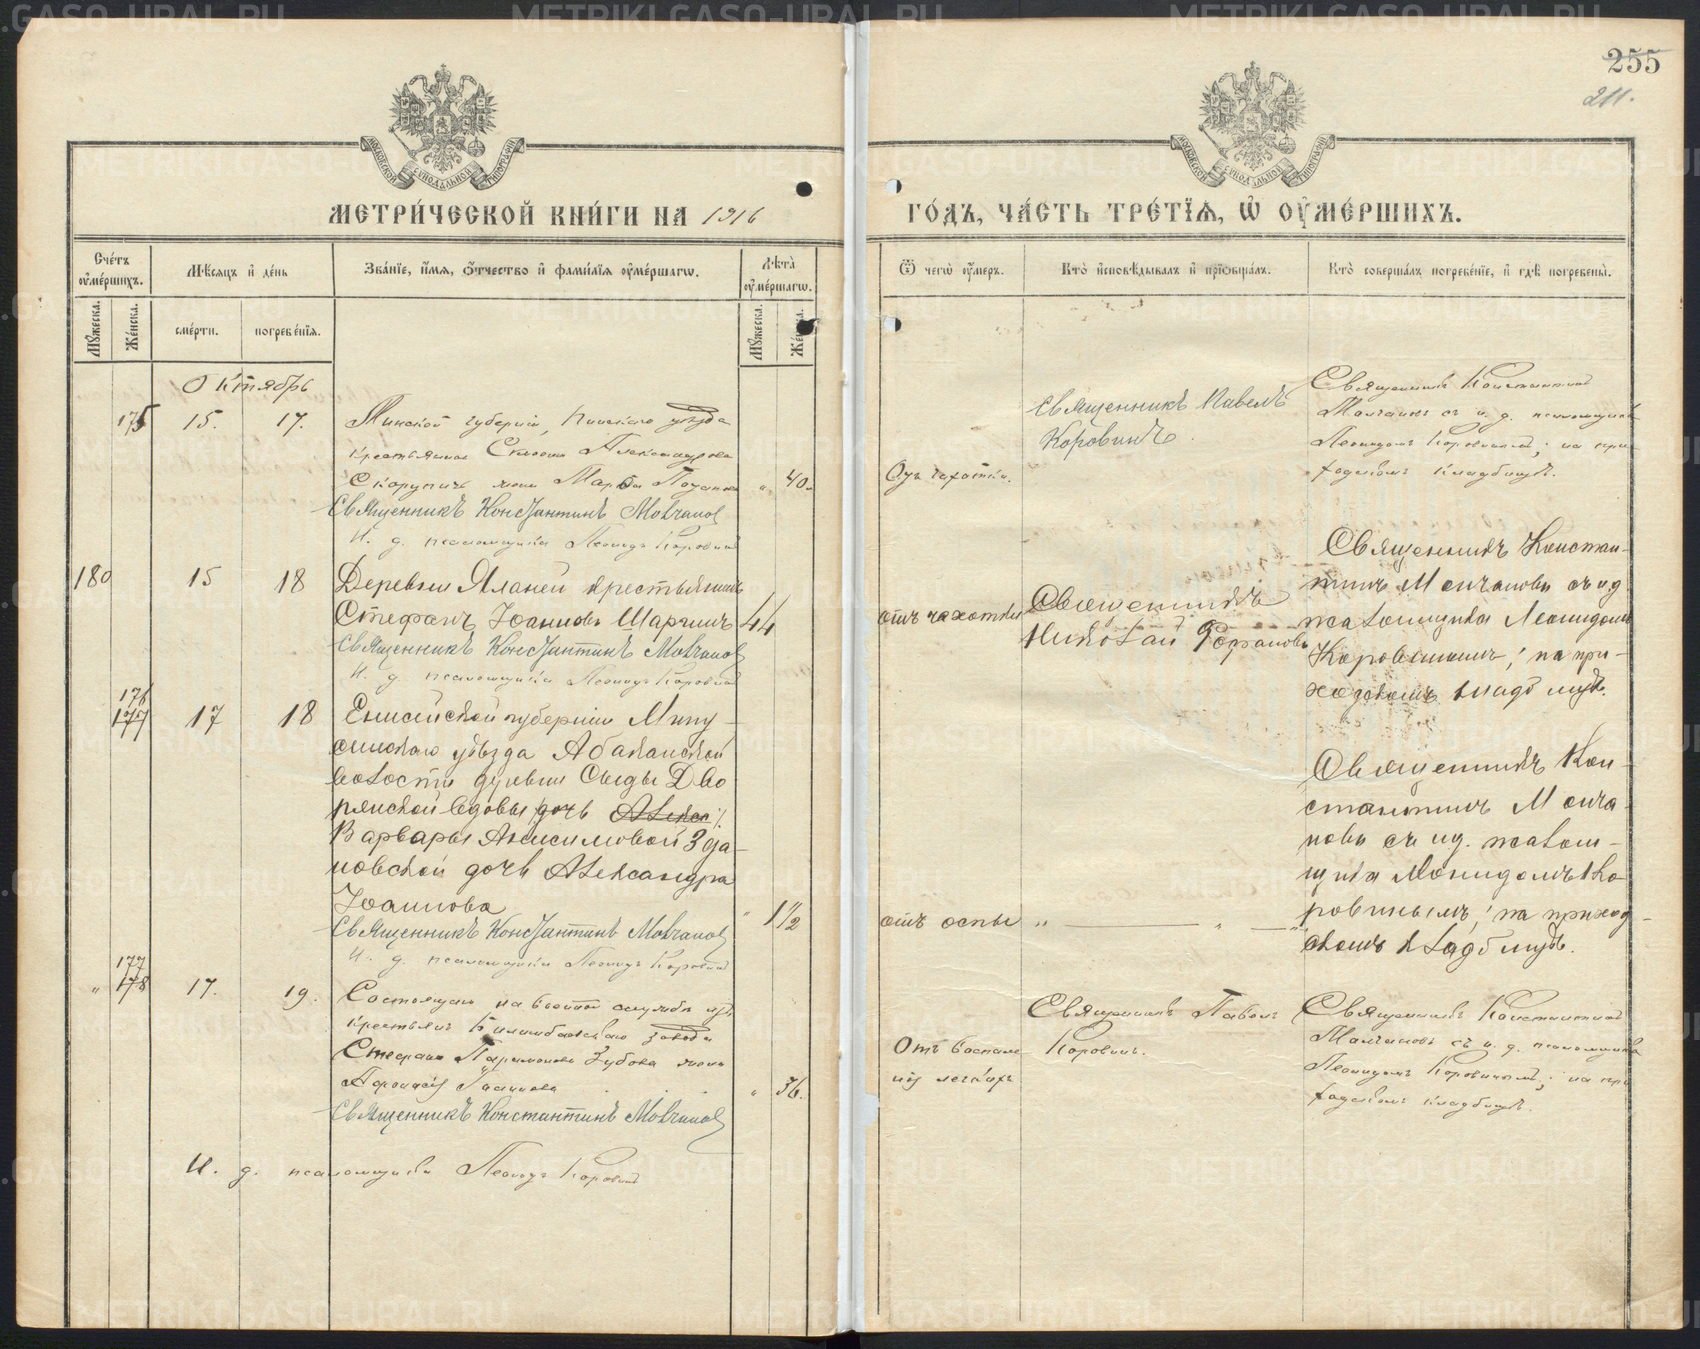 255
211.
МОСКОВСКОЙ СѴНОДАЛЬНОЙ ТИПОГРАФІИ
МОСКОВСКОЙ СѴНОДАЛЬНОЙ ТИПОГРАФІИ
МЕТРИ́ЧЕСКОЙ КНИ́ГИ НА 1916
ГО́ДЪ, ЧА́СТЬ ТРЕ́ТІЯ, Ѿ ОУ҆МЕ́РШИХЪ.
Сче́тъ оу҆ме́ршихъ.
Мꙋжеска.
Же́нска.
Мѣ́сяцъ и҆ де́нь
сме́рти.
погребе́нїя.
Зва́нїе, и҆́мя, ѻ҆́тчество и҆ фами́лїя оу҆ме́ршагѡ.
Лѣта̀ оу҆ме́ршагѡ.
Мꙋжеска.
Же́нска.
Ѿ чегѡ̀ оу҆́меръ.
Кто̀ и҆сповѣ́дывалъ и҆ прїѡбща́лъ.
Кто̀ соверша́лъ погребе́нїе, и҆ гдѣ̀ погребены̀.
Октябрь
175 15. 17.
Минской губерніи, Пинскаго уѣзда
крестьянина Александрова
Скорупичъ жена Марѳа
" 40.
Священникъ Константинъ Молчановъ
И. д. псаломщика Леонидъ Коровинъ
Отъ чахотки.
Священникъ Павелъ
Коровинъ.
Священникъ Константинъ
Молчановъ съ и. д. псаломщика
Леонидомъ Коровинымъ; на при-
ходскомъ кладбищѣ.
180 15 18
Деревни Яланей крестьянинъ
Стефанъ Іоанновъ Шаргинъ 44
Священникъ Константинъ Молчановъ
И. д. псаломщика Леонидъ Коровинъ
отъ чахотки
Священникъ
Николай
Священникъ Констан-
тинъ Молчановъ съ и д
псаломщика Леонидомъ
Коровинымъ; на при-
ходскомъ кладбищѣ.
176
177 17 18
Енисейской губерніи Мину-
синскаго уѣзда Абаканской
волости деревни Сыды Дво
рянской вдовы дочь
Варвары Анисимовой Зда-
новской дочь Александра
Іоаннова
" 1 1/2
Священникъ Константинъ Молчановъ
И. д. псаломщика Леонидъ Коровинъ
отъ оспы
" — " — "
Священникъ Кон-
стантинъ Молча-
новъ съ ид. псалом-
щика Леонидомъ Ко-
ровинымъ; на приход-
скомъ кладбищѣ.
177
" 178 17. 19.
Состоящаго на военной службѣ изъ
крестьянъ Билимбаевскаго завода
Стефана Парамонова Зубова жена
" 36.
Священникъ Константинъ Молчановъ
И. д. псаломщика Леонидъ Коровинъ
Отъ воспале-
нія легкихъ
Священникъ Павелъ
Коровинъ.
Священникъ Константинъ
Молчановъ съ и. д. псаломщика
Леонидомъ Коровинымъ; на при
ходскомъ кладбищѣ.
METRIKI.GASO-URAL.RU